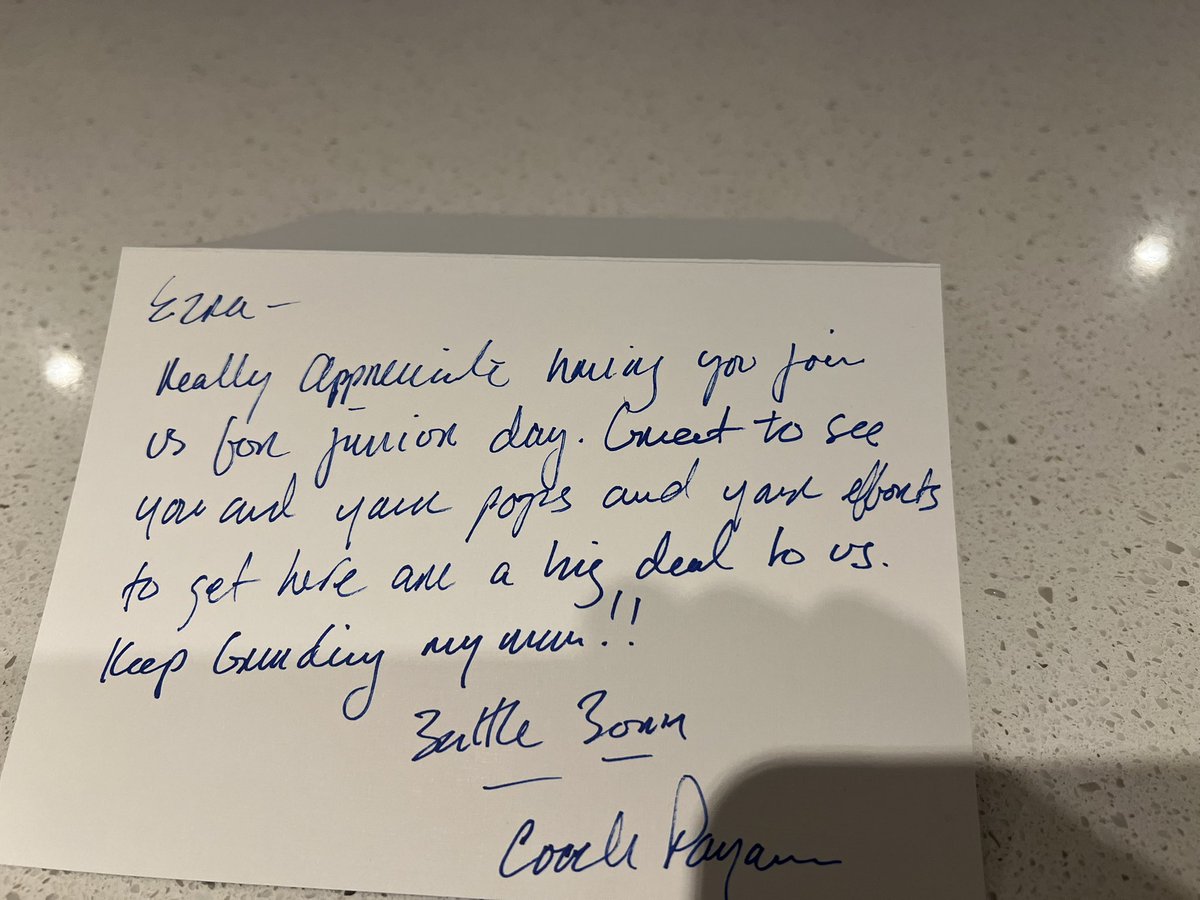 Ezra -
Really Appreciate having you join
us for junior day. Great to see
you and your pops and your efforts
to get here are a big deal to us.
Keep Grinding my man!!
Battle Born
Coach